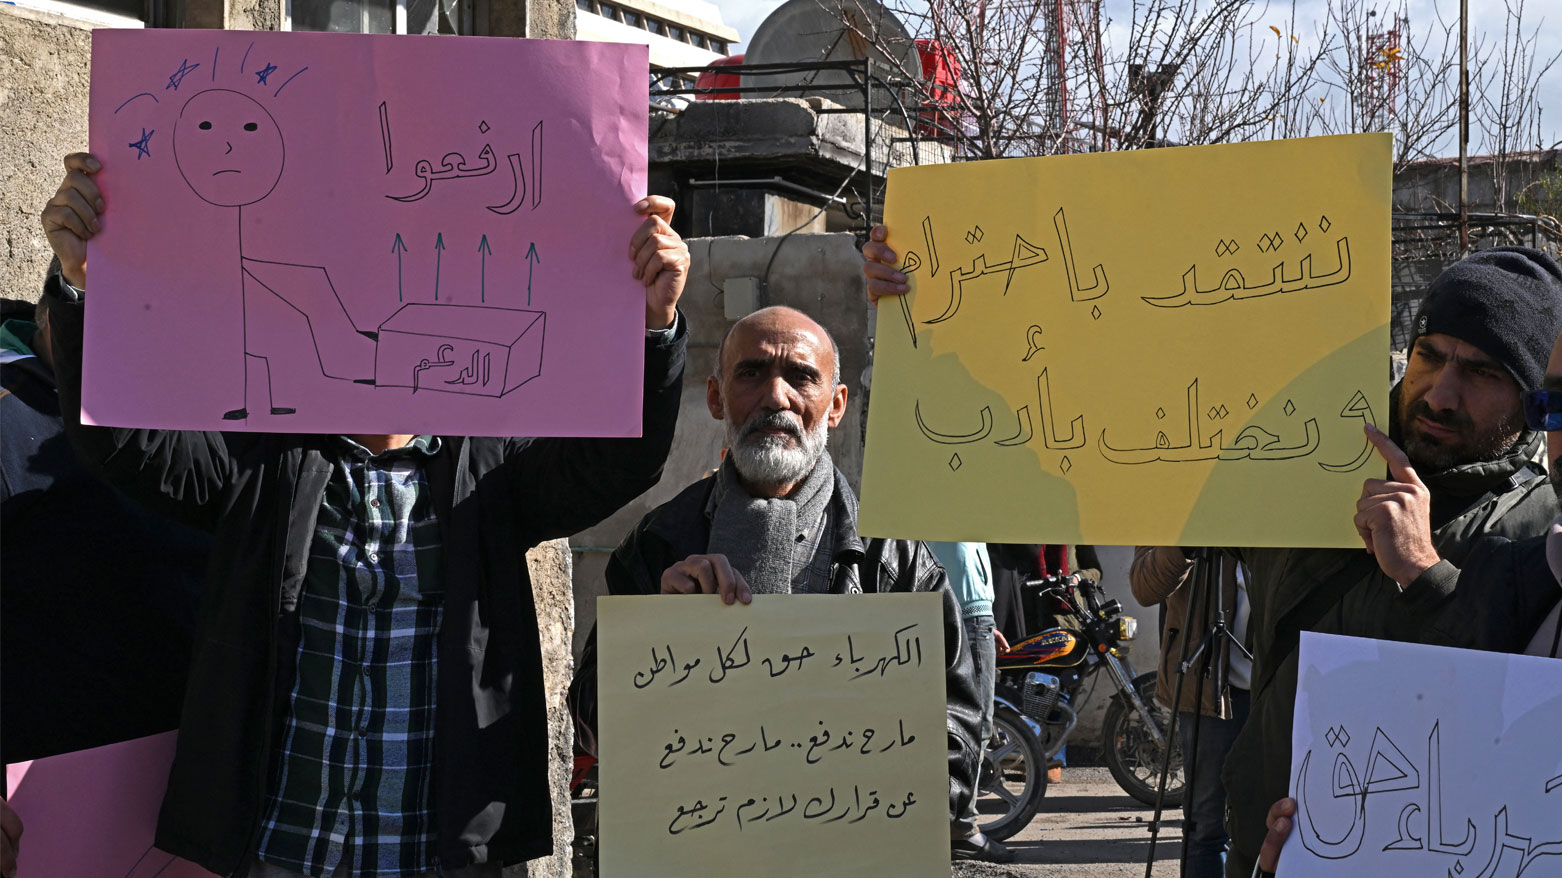 ارفعوا
الدعم
ننتقد باحترام
ونختلف بأدب
الكهرباء حق لكل مواطن
مارح ندفع .. مارح ندفع
عن قرارك لازم ترجع
حق